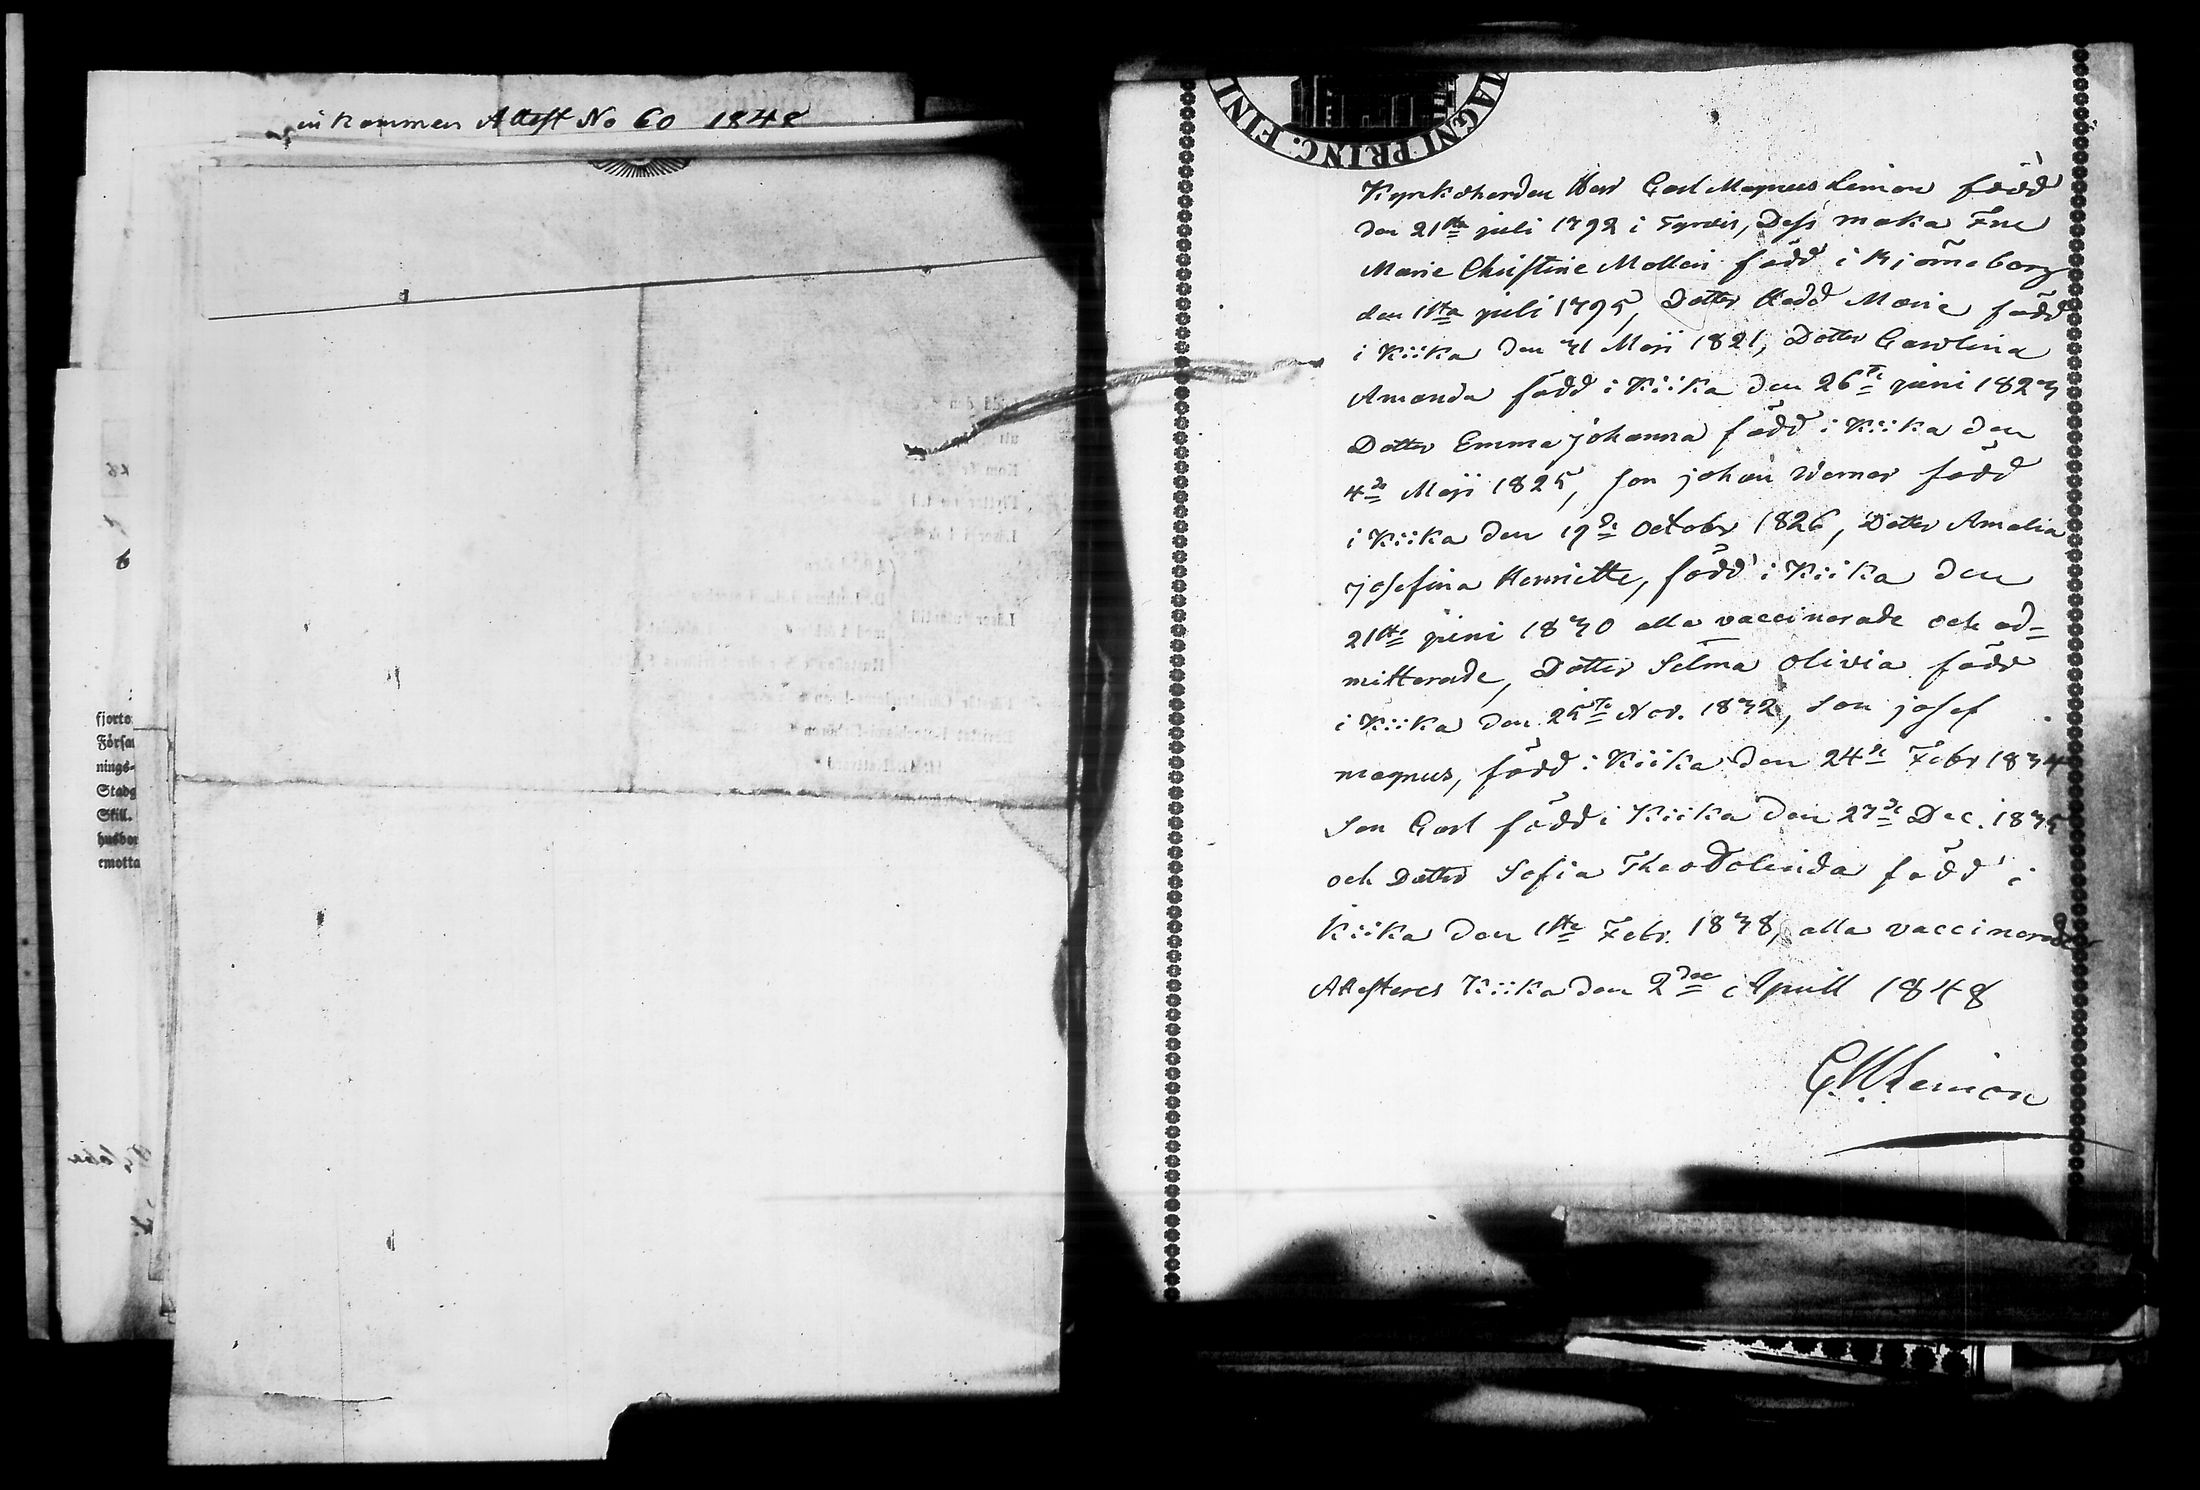 inkommen Attest No 60 1848
fjorto
Försa
nings-
Stadg
Skill.
husbon
emotta
MAGNI PRINC. FINL
Kyrkoherden Herr Carl Magnus Lenion född
den 21sta juli 1792 i Tyrvis, Dess maka Fru
Marie Christine Mollin född i Björneborg
den 1sta juli 1795, Dotter Hedd Marie född
i Kiika den 31 Maji 1821, Dotter Carolina
Amanda född i Kiika den 26te juni 1823
Dotter Emma Johanna född i Kiika den
4de Maji 1825, Son Johan Werner född
i Kiika den 19de October 1826, Dotter Amalia
Josefina Henriette, född i Kiika den
21ste juni 1830 alla vaccinerade och ad=
mitterade, Dotter Selma Olivia född
i Kiika den 25te Nov. 1832, Son Josef
Magnus, född i Kiika den 24de Febr 1834
Son Carl född i Kiika den 27de Dec. 1835
och Dotter Sofia Theodolinda född i
Kiika den 1ste Febr. 1838, alla vaccinerade
Attesteres Kiika den 2dre Aprill 1848
C. M. Lenion